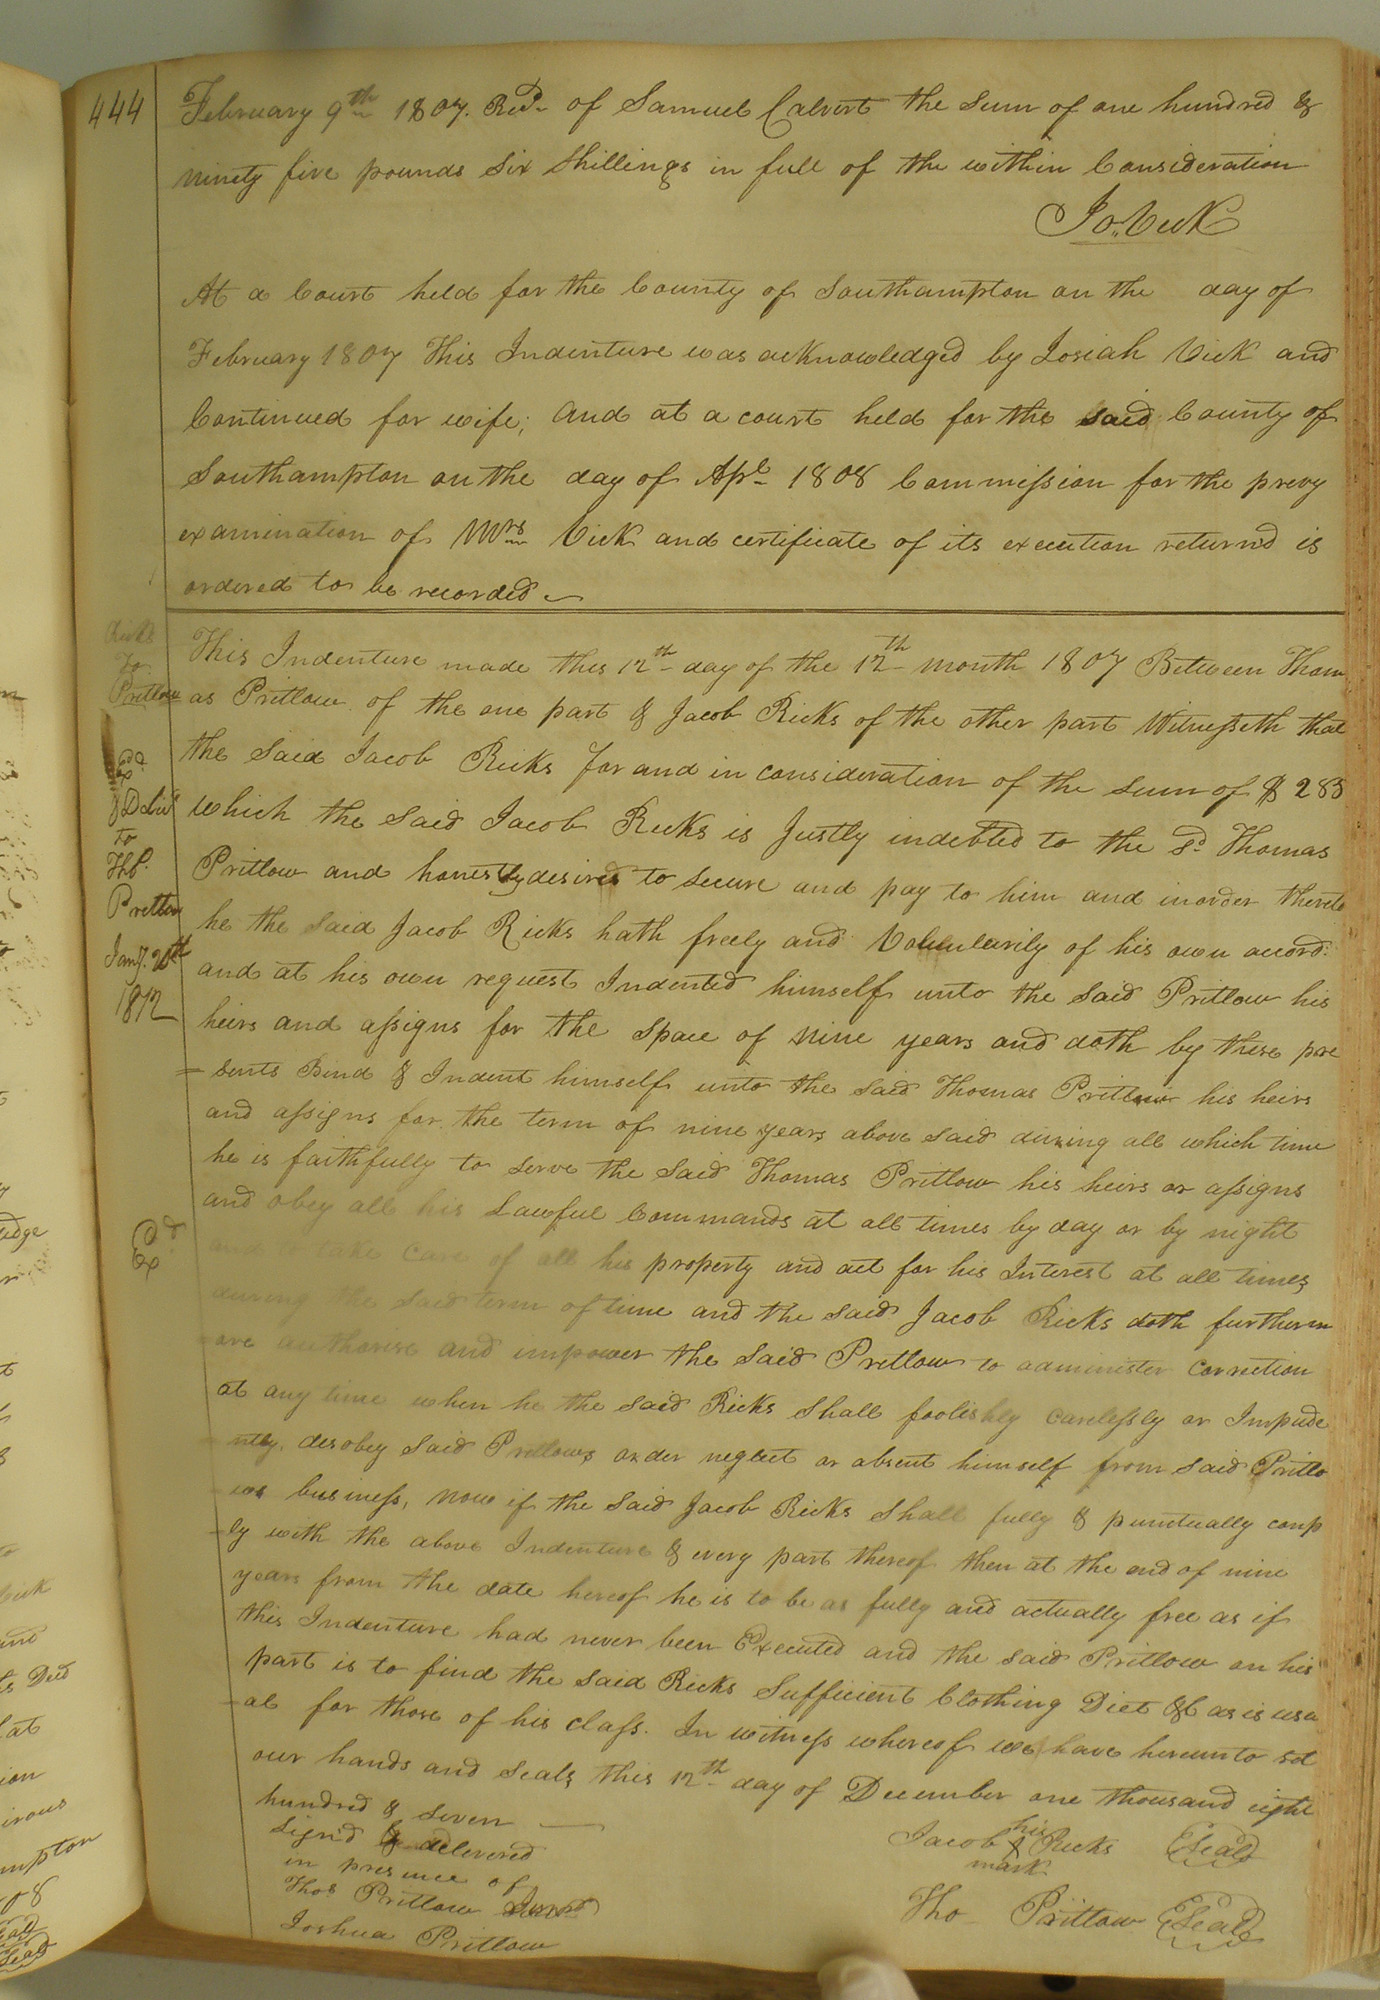 444
February 9th 1807. Recd of Samuel Calvert the Sum of one hundred &
ninety five pounds Six Shillings in full of the within Consideration
Jo. Vick
At a Court held for the County of Southampton on the day of
February 1807 This Indenture was acknowledged by Josiah Vick and
Continued for wife; and at a court held for the said County of
Southampton on the day of Apl 1808 Commission for the prevy
examination of Mrs Vick and certificate of its execution return'd is
ordered to be recorded
Ricks
To
Pritlow
This Indenture made this 12th day of the 12th month 1807 Between Thom
as Pritlow of the one part & Jacob Ricks of the other part Witnesseth that
the Said Jacob Ricks for and in consideration of the sum of $ 285
which the Said Jacob Ricks is Justly indebted to the sd Thomas
Pritlow and honestly desires to secure and pay to him and inorder thereto
he the said Jacob Ricks hath freely and Voluntarily of his own accord
and at his own request Indented himself unto the Said Pritlow his
heirs and assigns for the space of nine years and doth by these pre
=sents Bind & Indent himself unto the said Thomas Pritlow his heirs
and assigns for the term of nine years above said during all which time
he is faithfully to serve the Said Thomas Pritlow his heirs or assigns
and obey all his Lawful Commands at all times by day or by night
and to take care of all his property and act for his Interest at all times
during the said term of time and the said Jacob Ricks doth furtherm
ore authorise and impower the said Pritlow to administer Correction
at any time when he the said Ricks Shall foolishly carelessly or Impude
ntly, disobey Said Pritlows order neglect or absent himself from said Pritlo
ws business, now if the Said Jacob Ricks Shall fully & punctually comp
-ly with the above Indenture & every part thereof then at the end of nine
years from the date hereof he is to be as fully and actually free as if
this Indenture had never been Executed and the said Pritlow on his
part is to find the Said Ricks Sufficient Clothing Diet &c as is usu
-al for those of his class. In witness whereof we have hereunto set
our hands and seals this 12th day of December one thousand eight
hundred & seven
Exd
& Delivd
to
Pretlow
Jany. 20th
1812
Exd
Sign'd & delivered
in presence of
Thos Pritlow
Joshua Pritlow
his
Jacob Ricks Seal
mark
Tho Pritlow Seal